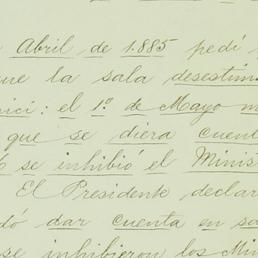 Abril de 1.885 pedí
que la sala desestim
nici: el 1º de Mayo m
que se diera cuent
se inhibió el Minis
El Presidente declar
dó dar cuenta en sa
se inhibieron los Min